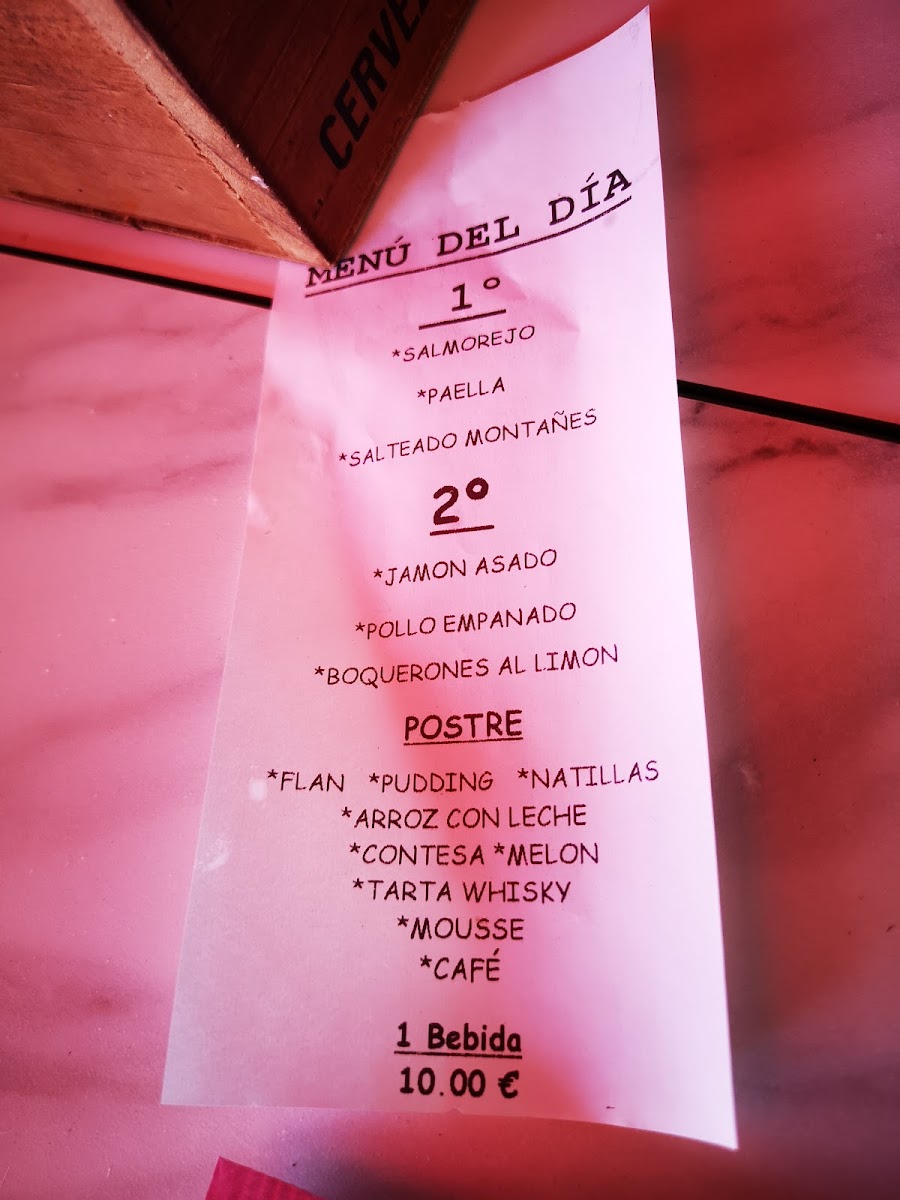 CERVE
MENÚ DEL DÍA
1º
*SALMOREJO
*PAELLA
*SALTEADO MONTAÑES
2º
*JAMON ASADO
*POLLO EMPANADO
*BOQUERONES AL LIMON
POSTRE
*FLAN *PUDDING *NATILLAS
*ARROZ CON LECHE
*CONTESA *MELON
*TARTA WHISKY
*MOUSSE
*CAFÉ
1 Bebida
10.00 €